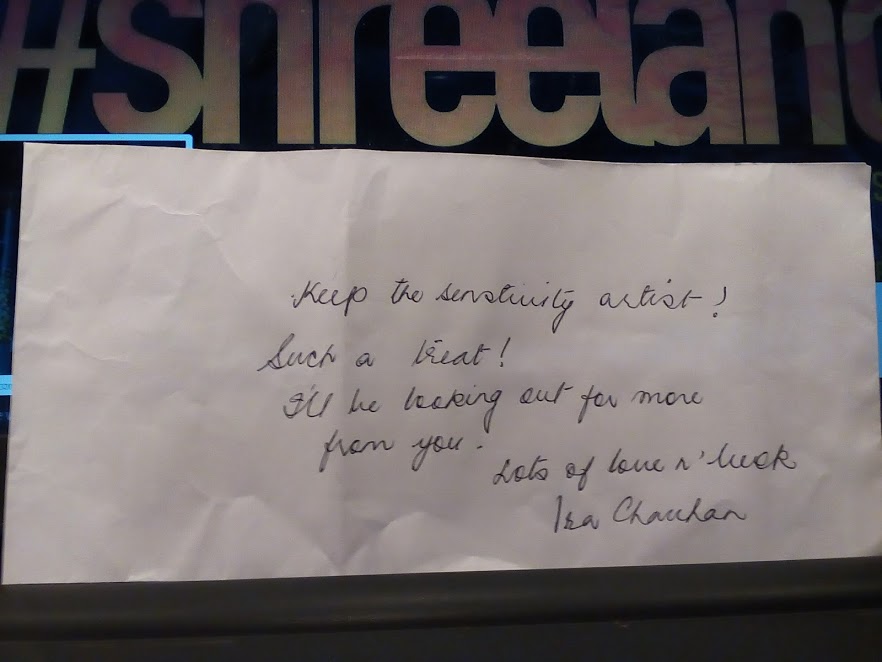 #shreelan
Keep the senstivity artist!
Such a treat!
I'll be looking out for more
from you.
Lots of love n' luck
Ira Chauhan